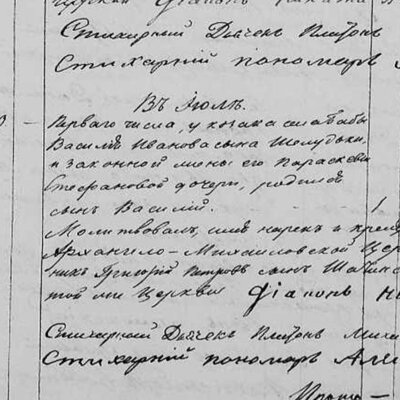 Стихарный Дьячекъ Платонъ
Стихарній пономаръ
Въ Іюлѣ.
Перваго числа, у козака слабабы
Василія Иванова сына Шолудьки,
и законной жены его Параскевы
Стефановой дочери, родился
сынъ Василій.
Молитвовалъ, имя нарекъ и
Архангело-Михайловской Цер
никъ Григорій Петровъ сынъ
той же Церквы Діаконъ
Стихарный Дьячекъ Платонъ Миха
Стихарній пономаръ Але